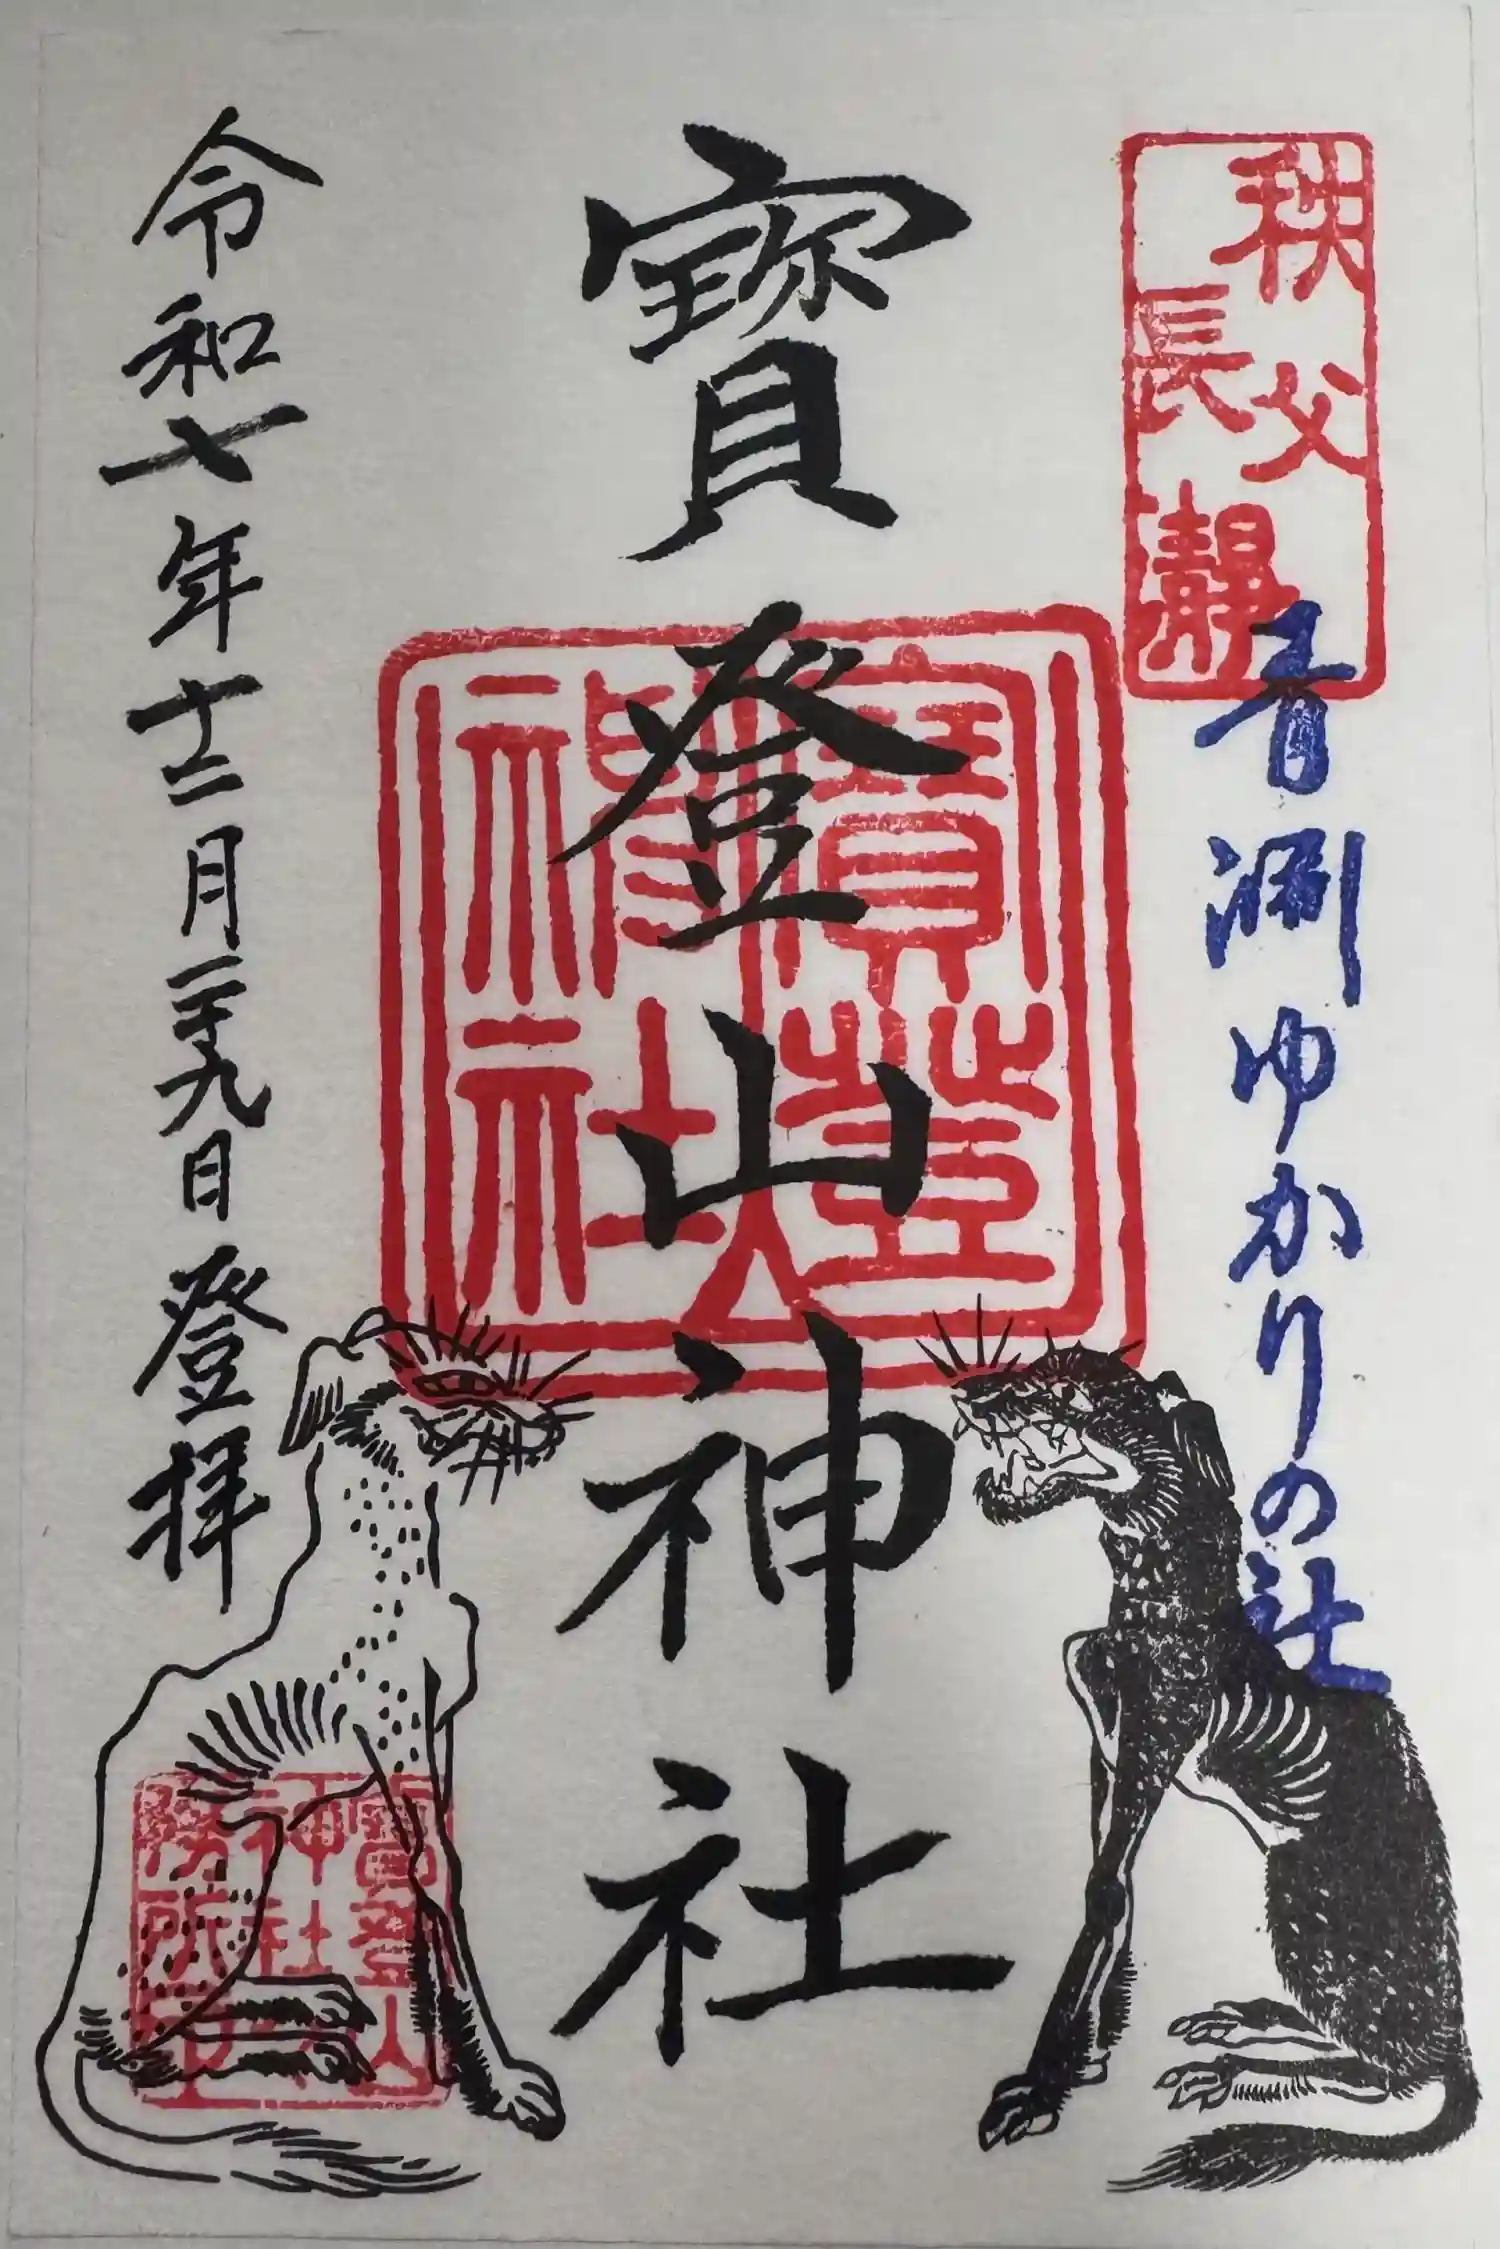 秩父
長瀞
青淵ゆかりの社
寶登山神社
寶登山
神社
令和七年十二月二十九日登拝
寶登山
神社
務所